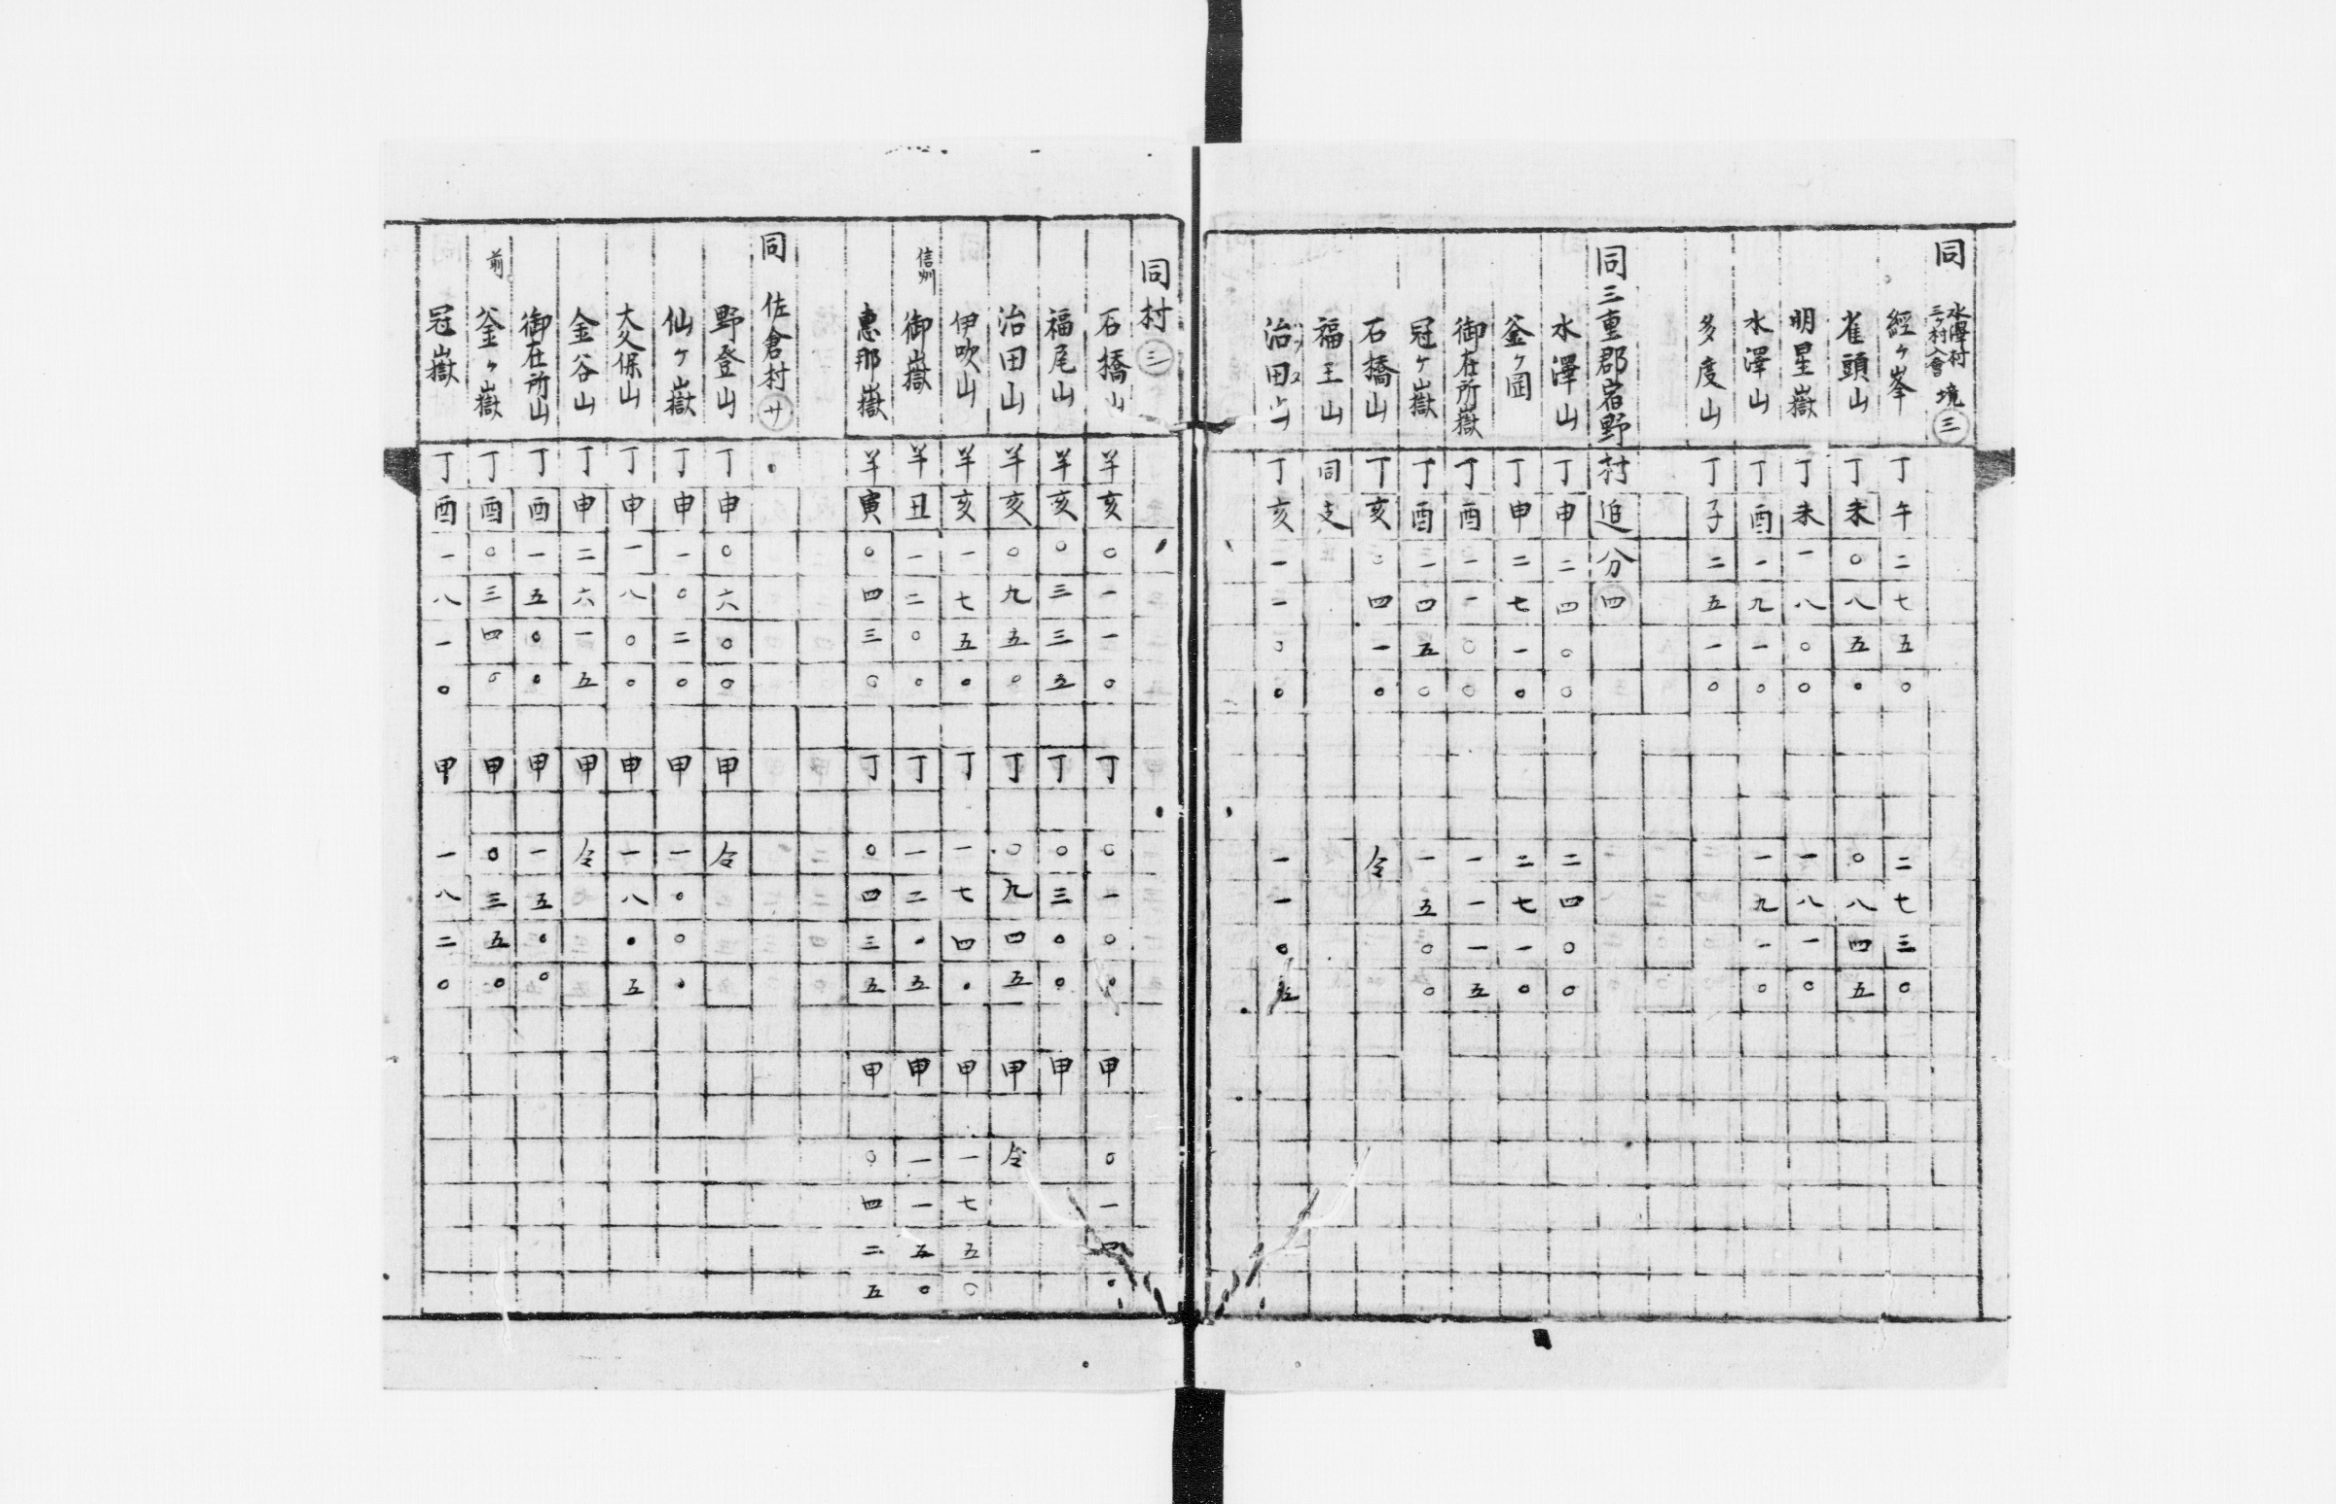 同 水澤村三ヶ村入會境 三
経ヶ峯 丁午二七五〇 二七三〇
雀頭山 丁未〇八五〇 〇八四五
明星嶽 丁未一八〇〇 一八一〇
水澤山 丁酉一九一〇 一九一〇
多度山 丁子二五一〇
同三重郡宿野村追分 四
水澤山 丁申二四〇〇 二四〇〇
釜ヶ岡 丁申二七一〇 二七一〇
御在所嶽 丁酉一一〇〇 一一一五
冠ヶ嶽 丁酉一四五〇 一五〇〇
石橋山 丁亥〇四一〇 令
福王山 同支
治田山 丁亥一一〇〇 一一〇五
同村 三
石橋山 羊亥〇一一〇 丁 〇一〇〇 甲 〇一四〇
福尾山 羊亥〇三三五 丁 〇三〇〇 甲
治田山 羊亥〇九五〇 丁 〇九四五 甲 令
伊吹山 羊亥一七五〇 丁 一七四〇 甲 一七五〇
信州 御嶽 羊丑一二〇〇 丁 一二〇五 甲 一一五〇
恵那嶽 羊寅〇四三〇 丁 〇四三五 甲 〇四二五
同 佐倉村 廿
野登山 丁申〇六〇〇 甲 令
仙ヶ嶽 丁申一〇二〇 甲 一〇〇〇
大久保山 丁申一八〇〇 申 一八〇五
金谷山 丁申二六一五 甲 令
御在所山 丁酉一五〇〇 甲 一五〇〇
前 釜ヶ嶽 丁酉〇三四〇 甲 〇三五〇
冠嶽 丁酉一八一〇 甲 一八二〇